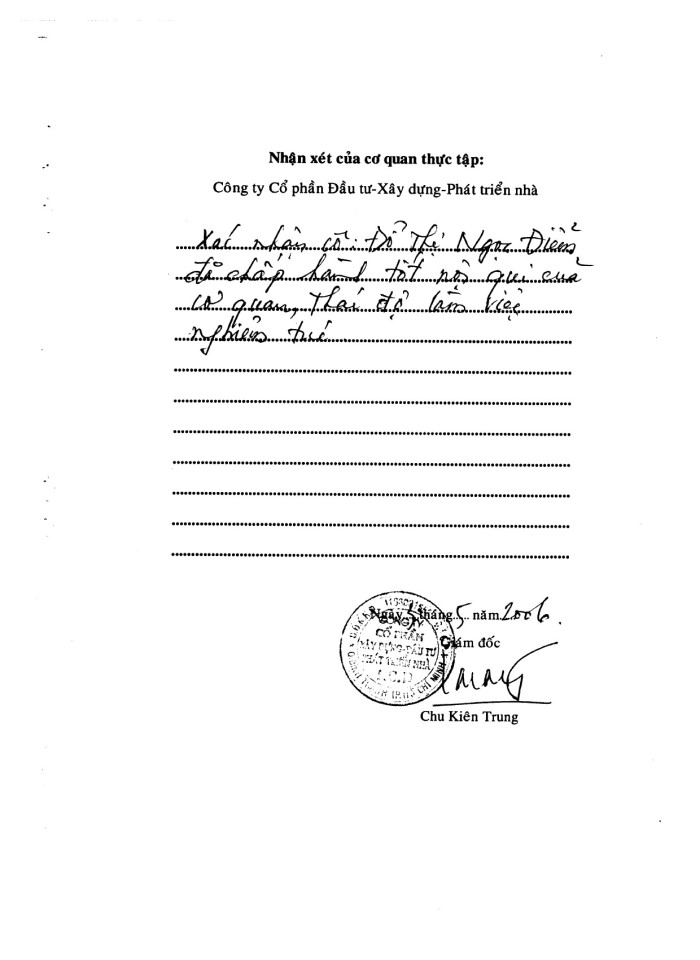 Nhận xét của cơ quan thực tập:
Công ty Cổ phần Đầu tư-Xây dựng-Phát triển nhà
Xác nhận cô: Đỗ Thị Ngọc Điểm
đã chấp hành tốt nội qui của
cơ quan, Thái độ làm việc
nghiêm túc
Ngày 5 tháng 5 năm 2006.
CÔNG TY
CỔ PHẦN
XÂY DỰNG-ĐẦU TƯ
PHÁT TRIỂN NHÀ
Giám đốc
Chu Kiên Trung